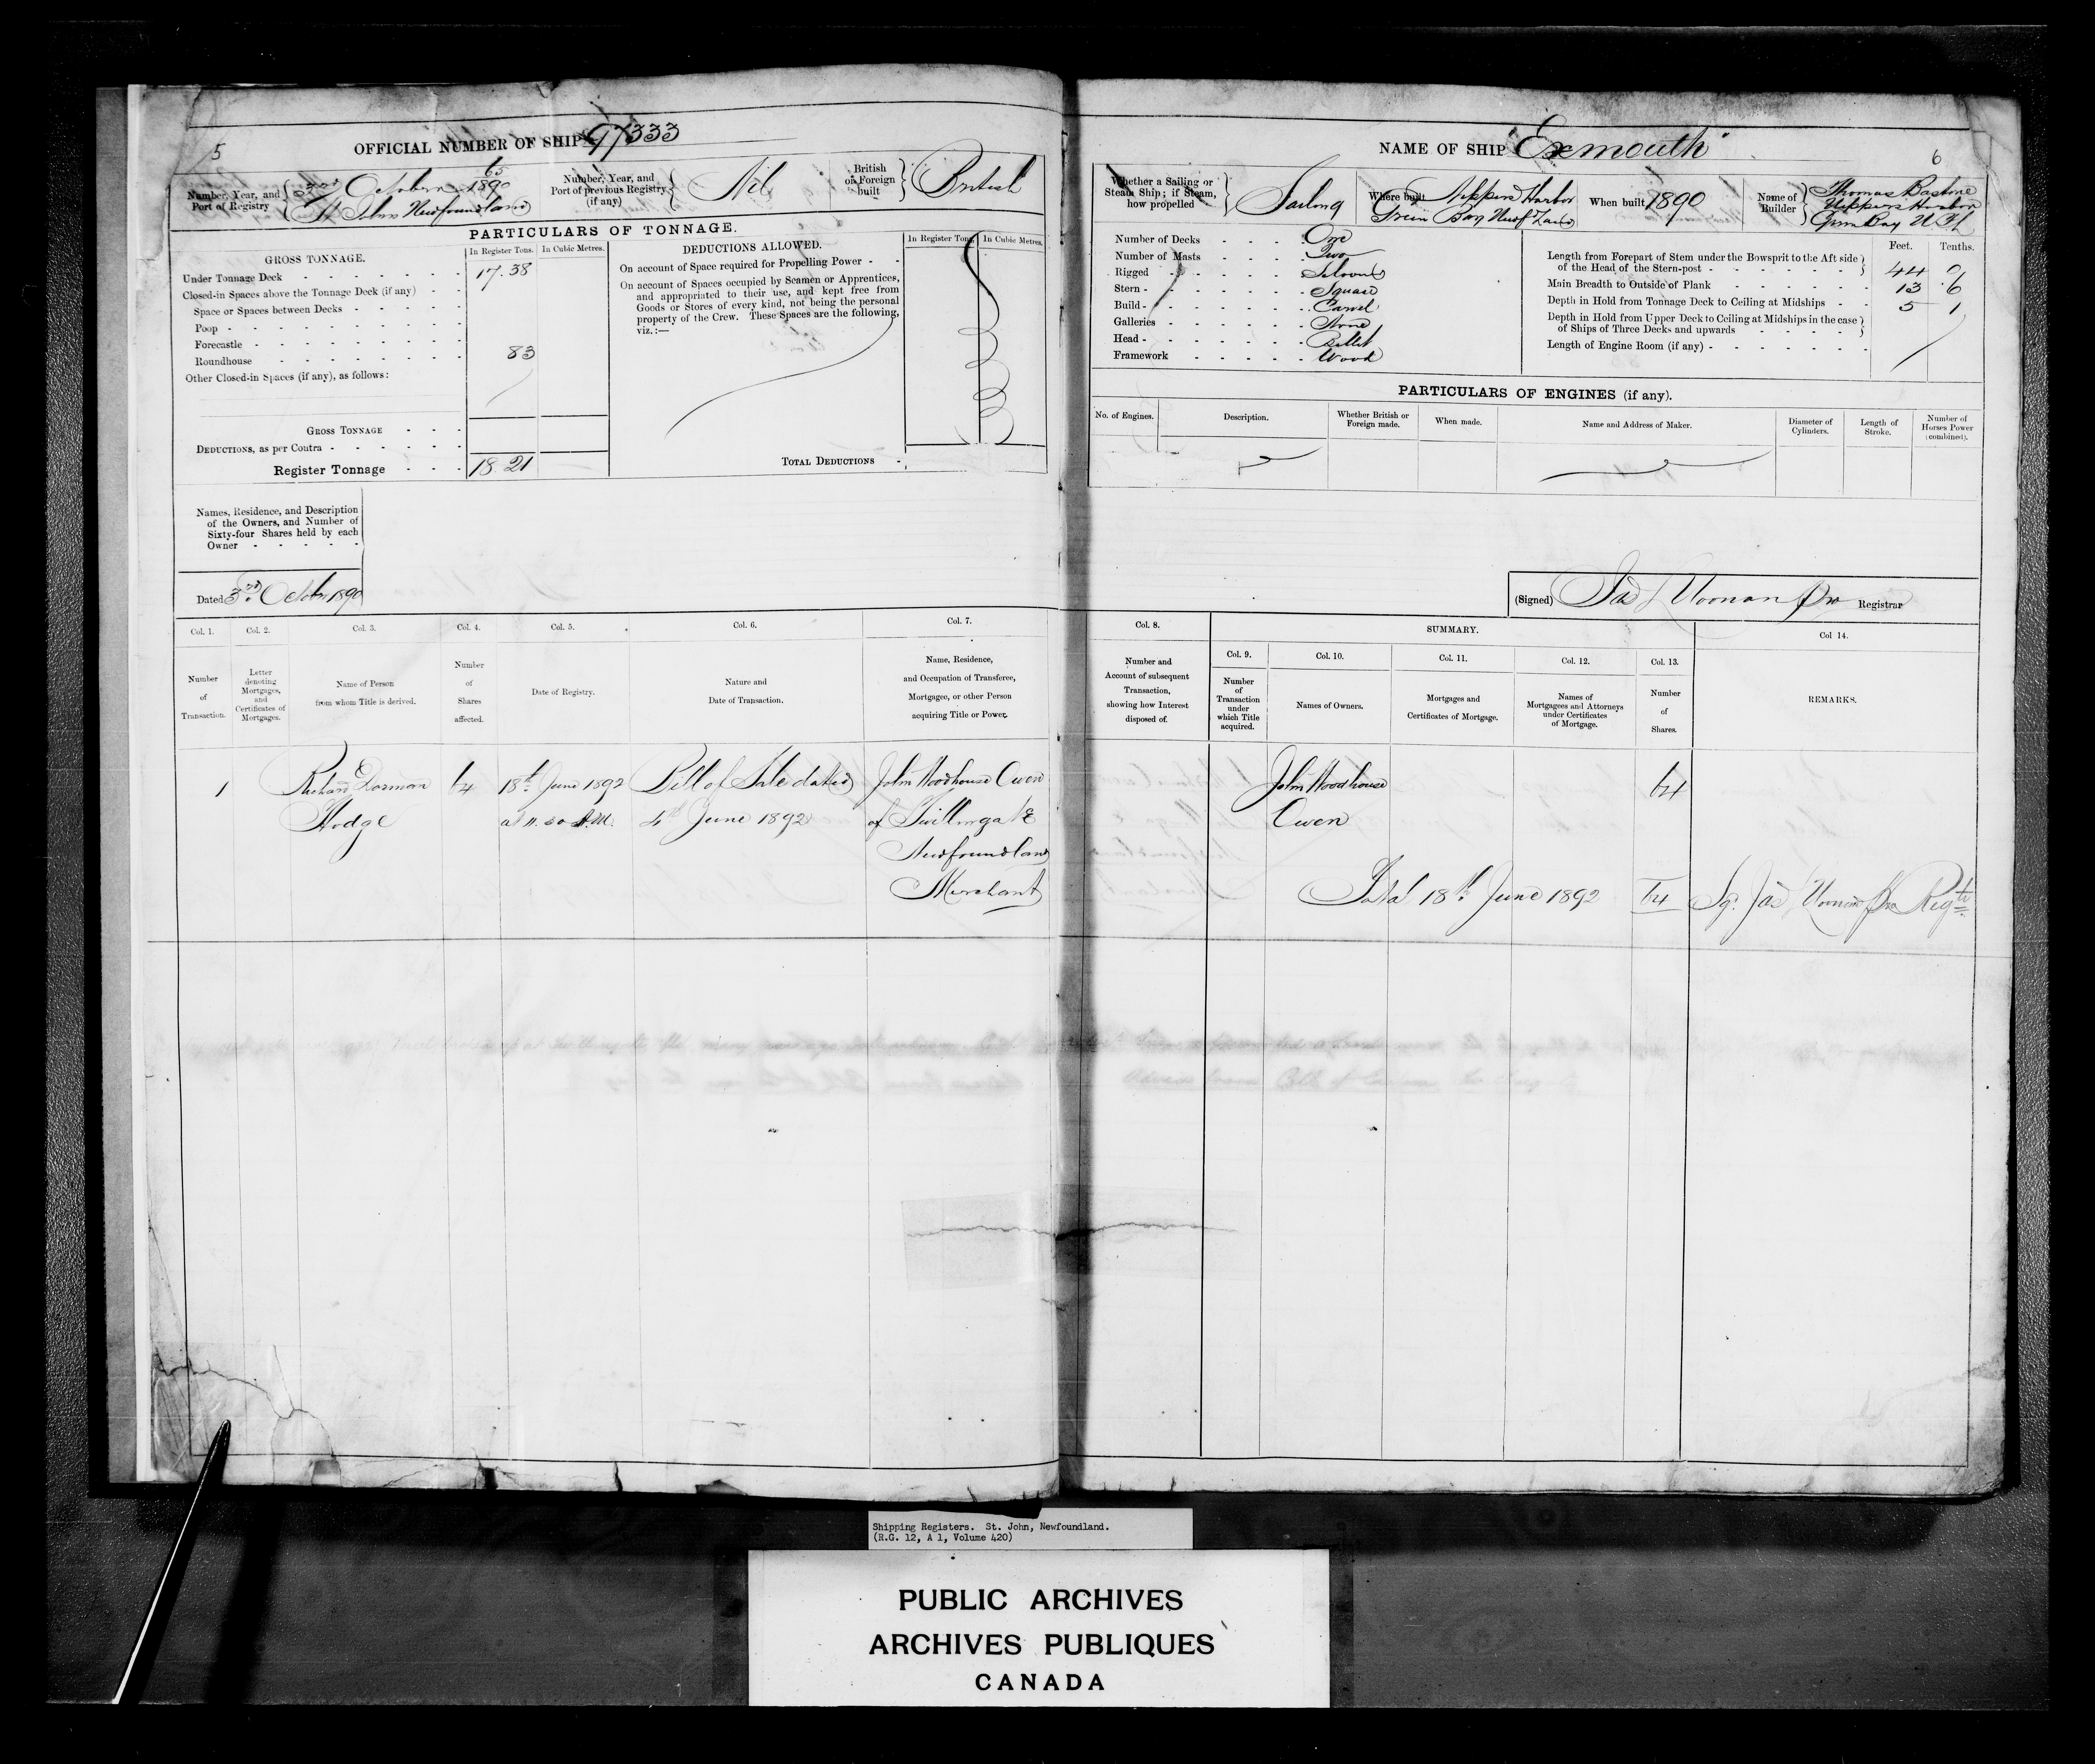 5
OFFICIAL NUMBER OF SHIP 97333
Number, Year, and Port of Registry
65
3rd October 1890
St John Newfoundland
Number, Year, and Port of previous Registry (if any)
Nil
British or Foreign built
British
PARTICULARS OF TONNAGE.
GROSS TONNAGE.
In Register Tons. In Cubic Metres.
Under Tonnage Deck 17.38
Closed-in Spaces above the Tonnage Deck (if any)
Space or Spaces between Decks
Poop
Forecastle
Roundhouse 83
Other Closed-in Spaces (if any), as follows:
GROSS TONNAGE
DEDUCTIONS, as per Contra
Register Tonnage 18.21
DEDUCTIONS ALLOWED.
In Register Tons. In Cubic Metres.
On account of Space required for Propelling Power
On account of Spaces occupied by Seamen or Apprentices,
and appropriated to their use, and kept free from
Goods or Stores of every kind, not being the personal
property of the Crew. These Spaces are the following,
viz.:—
TOTAL DEDUCTIONS
Names, Residence, and Description
of the Owners, and Number of
Sixty-four Shares held by each
Owner
Dated 3rd October 1890
Col. 1. Col. 2. Col. 3. Col. 4. Col. 5. Col. 6. Col. 7.
Number of Transaction.
Letter denoting Mortgages, and Certificates of Mortgages.
Name of Person from whom Title is derived.
Number of Shares affected.
Date of Registry.
Nature and Date of Transaction.
Name, Residence, and Occupation of Transferee, Mortgagee, or other Person acquiring Title or Power.
1 Richard Dorman 64 18th June 1892 Bill of Sale dated John Woodhouse Owen
Hodge at 11.30 A.M. 4th June 1892 of Twillingate
Newfoundland
Merchant
NAME OF SHIP "Exmouth"
6
Whether a Sailing or Steam Ship; if Steam, how propelled
Sailing
Where built
Nippers Harbor
Green Bay Newfdland
When built 1890
Name of Builder
Thomas Bastone
Nippers Harbor
Green Bay N.F.L
Number of Decks One
Number of Masts Two
Rigged Schooner
Stern Square
Build Carvel
Galleries None
Head Billet
Framework Wood
Feet. Tenths.
Length from Forepart of Stem under the Bowsprit to the Aft side
of the Head of the Stern-post 44 0
Main Breadth to Outside of Plank 13 .6
Depth in Hold from Tonnage Deck to Ceiling at Midships 5 1
Depth in Hold from Upper Deck to Ceiling at Midships in the case
of Ships of Three Decks and upwards
Length of Engine Room (if any)
PARTICULARS OF ENGINES (if any).
No. of Engines.
Description.
Whether British or Foreign made.
When made.
Name and Address of Maker.
Diameter of Cylinders.
Length of Stroke.
Number of Horses Power (combined).
(Signed) Jas Registrar
Col. 8. SUMMARY. Col 14.
Col. 9. Col. 10. Col. 11. Col. 12. Col. 13.
Number and Account of subsequent Transaction, showing how Interest disposed of.
Number of Transaction under which Title acquired.
Names of Owners.
Mortgages and Certificates of Mortgage.
Names of Mortgagees and Attorneys under Certificates of Mortgage.
Number of Shares.
REMARKS.
John Woodhouse 64
Owen
18th June 1892 64 Sg. Jas Regtr
Shipping Registers. St. John, Newfoundland.
(R.G. 12, A 1, Volume 420)
PUBLIC ARCHIVES
ARCHIVES PUBLIQUES
CANADA